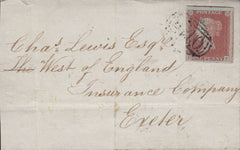 Chas. Lewis Esqr.
The West of England
Insurance Company
Exeter